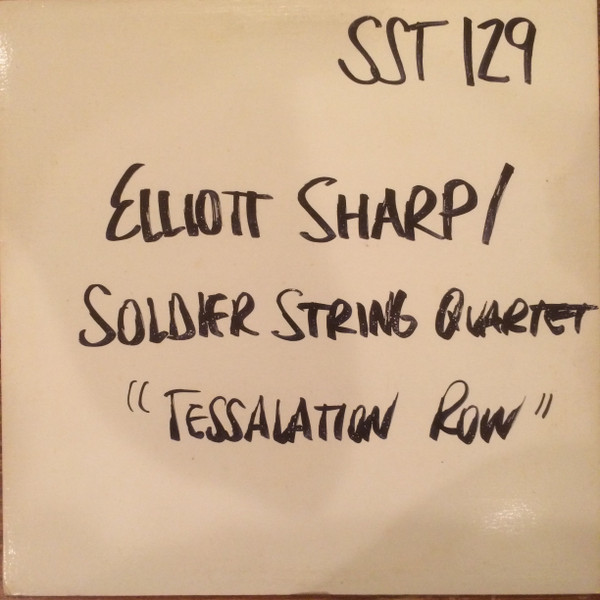 SST 129
ELLIOTT SHARP/
SOLDIER STRING QUARTET
"TESSALATION ROW"